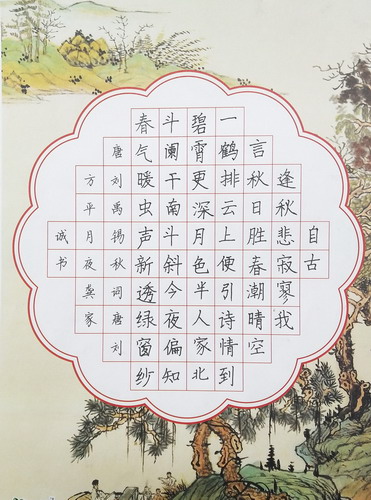 自古
逢秋悲寂寥我
言秋日胜春潮晴空
一鹤排云上便引诗情到
碧霄更深月色半人家北
斗阑干南斗斜今夜偏知
春气暖虫声新透绿窗纱
唐刘禹锡秋词唐刘
方平月夜龚家
诚书